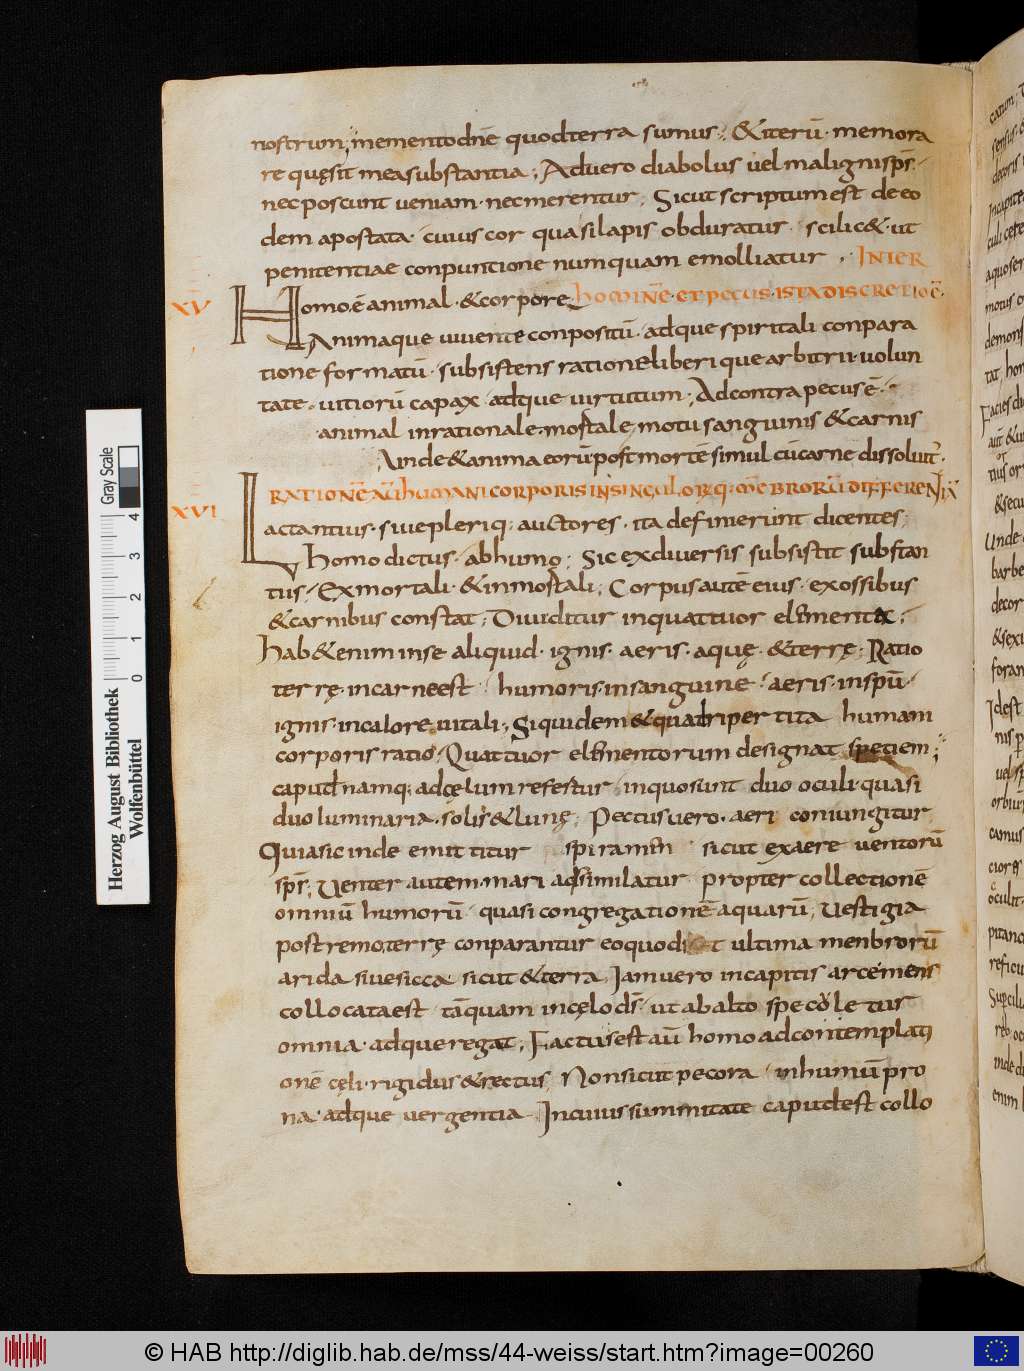 nostrum; memento dnē quod terra sumus; & iterū memora
re quęsit mea substantia; Ad vero diabolus vel maligni sps̄
nec poscunt veniam nec merentur; Sicut scriptum est de eo
dem apostata cuius cor quasi lapis obduratur scilic& ut
penitentiae conpuntione numquam emolliatur. INTER
XV Homo ē animal & corpore homine et pecus ista discretio ē
Animaque vivente conpositū adque spiritali conpara
tione formatū subsistens ratione liberique arbitrii volun
tate vitiorū capax adque virtutum; Ad contra pecus ē
animal inrationale mostale motu sanguinis & carnis
Unde & anima eorū post mortē simul cū carne dissoluit̄
XVI RATIONE AŪ HUMANI CORPORIS IN SINGULORQ; MEBRORŪ DIFFERENTIA
Lactantius sive pleriq; auctores ita definierunt dicentes;
Homo dictus ab humo; Sic ex diversis subsistit substan
tiis; Ex mortali & inmostali; Corpus autē eius ex ossibus
& carnibus constat; Dividitur in quattuor elementa;
Hab& enim in se aliquid ignis aeris aquę & terrę; Ratio
terrę in carne est humoris in sanguine aeris in spū
ignis in calore vitali; Siquidem & quadripertita humani
corporis ratio Quattuor elementorum designat speciem;
caput namq; ad cęlum refertur in quo sunt duo oculi quasi
duo luminaria solis & lunę; Pectus vero aeri coniungitur
Quia sic inde emittitur spiramen sicut ex aere ventorū
sps̄; Venter autem mari adsimilatur propter collectionē
omniū humorū quasi congregationē aquarū; Vestigia
postremo terrę conparantur eo quod ultima menbrorū
arida sive sicca sicut & terra Iam vero in capitis arce mens
collocata est tāquam in cęlo ds̄ ut ab alto speculetur
omnia adque regat; Factus est aū homo ad contemplati
onē cęli rigidus & rectus Non sicut pecora in humū pro
na adque vergentia Incuius summitate caput est collo
Herzog August Bibliothek
Wolfenbüttel
0 1 2 3 4
Gray Scale
© HAB http://diglib.hab.de/mss/44-weiss/start.htm?image=00260